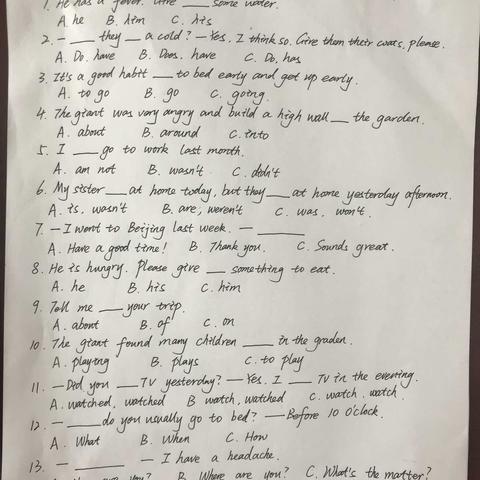 1. He has a fever. Give ___ some water.
A. he B. him C. his
2. — ___ they ___ a cold? — Yes, I think so. Give them their coats, please.
A. Do, have B. Does, have C. Do, has
3. It's a good habit ___ to bed early and get up early.
A. to go B. go C. going
4. The giant was very angry and build a high wall ___ the garden.
A. about B. around C. into
5. I ___ go to work last month.
A. am not B. wasn't C. didn't
6. My sister ___ at home today, but they ___ at home yesterday afternoon.
A. is, wasn't B. are, weren't C. was, won't.
7. — I went to Beijing last week. — ______
A. Have a good time! B. Thank you. C. Sounds great.
8. He is hungry. Please give ___ something to eat.
A. he B. his C. him
9. Tell me ___ your trip.
A. about B. of C. on
10. The giant found many children ___ in the graden.
A. playing B. plays C. to play
11. — Did you ___ TV yesterday? — Yes. I ___ TV in the evening.
A. watched, watched B watch, watched C. watch, watch.
12. — ___ do you usually go to bed? — Before 10 o'clock.
A. What B. When C. How
13. — ______ — I have a headache.
you? B. Where are you? C. What's the matter?